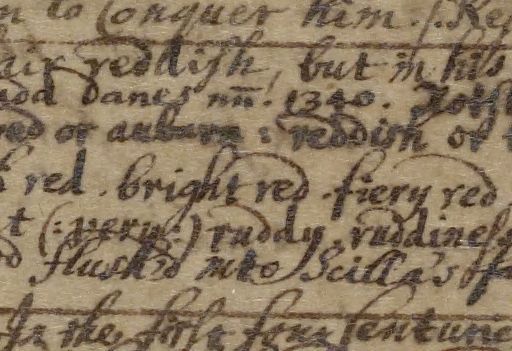 to Conquer him.
air reddish, but in his
danes 1340.
red or auburn: reddish or
red. bright red. fiery red
t (:very:) ruddy, ruddiness
flush'd into Scilla's fa
In the first four Centurie